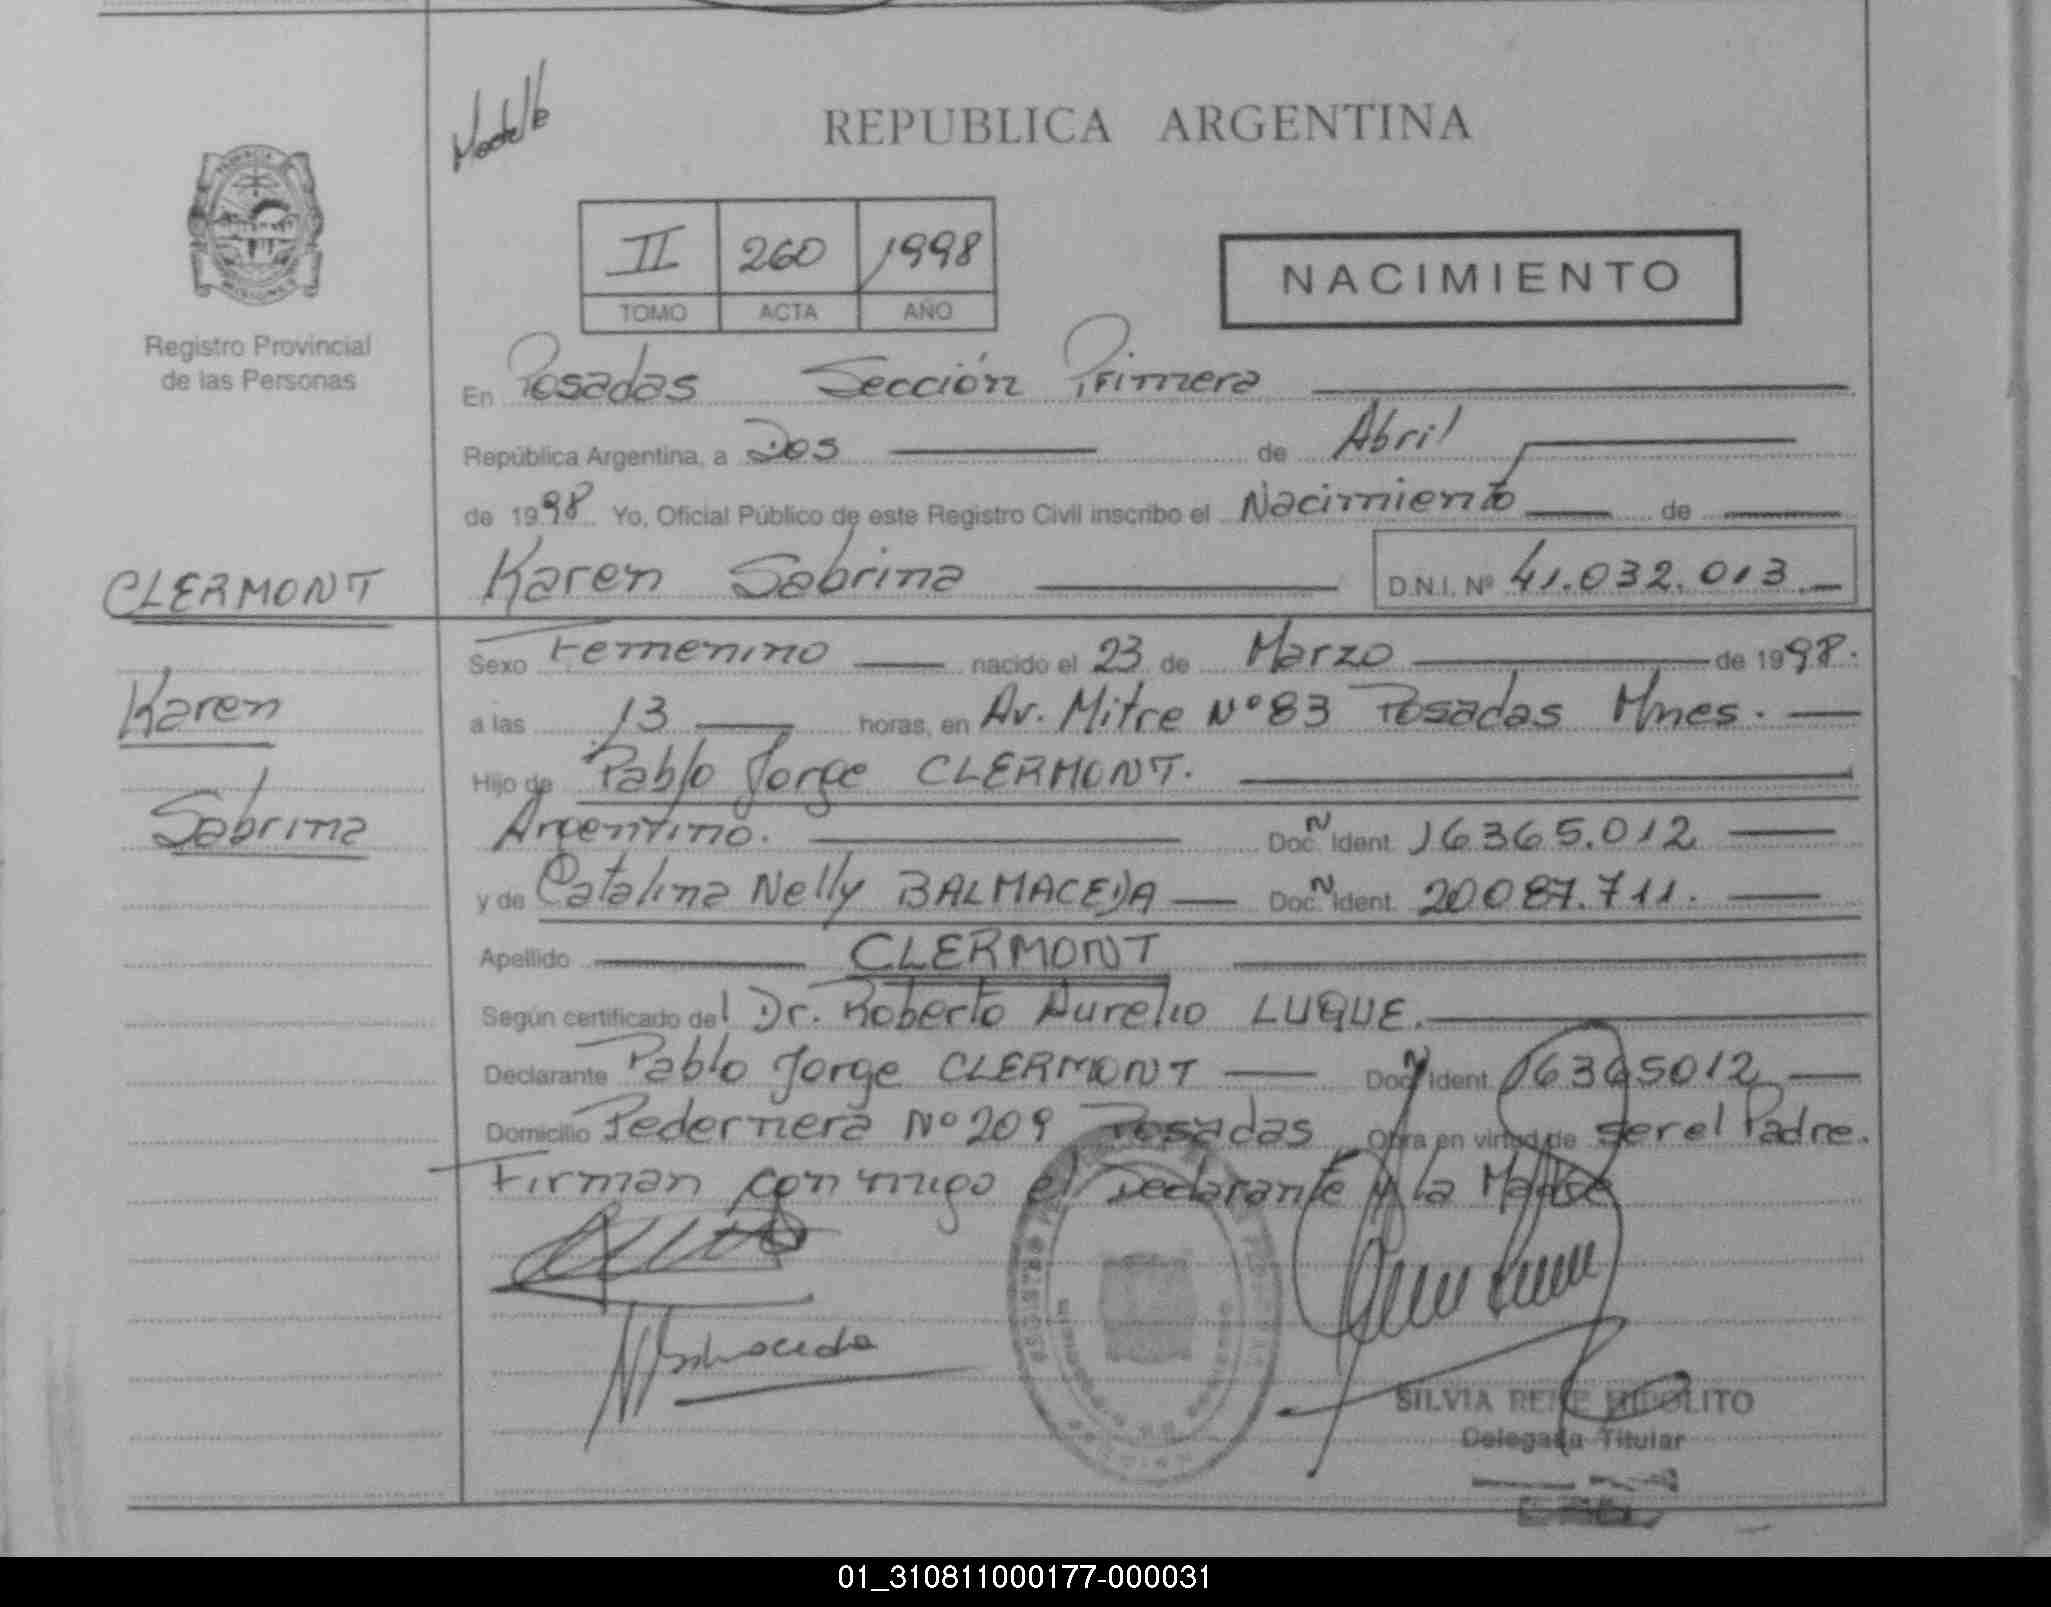 REPUBLICA ARGENTINA
II 260 1998
TOMO ACTA AÑO
NACIMIENTO
Registro Provincial
de las Personas
En Posadas Sección Primera
República Argentina, a Dos de Abril
de 1998 Yo, Oficial Público de este Registro Civil inscribo el Nacimiento de
CLERMONT
Karen Sabrina D.N.I. Nº 41.032.013
Sexo Femenino nacido el 23 de Marzo de 1998.
Karen
a las 13 horas, en Av. Mitre Nº 83 Posadas Mnes.
Hijo de Pablo Jorge CLERMONT.
Sabrina
Argentino. Doc. N Ident. 16365.012
y de Catalina Nelly BALMACEDA Doc. N Ident. 20087.711.
Apellido CLERMONT
Según certificado del Dr. Roberto Aurelio LUQUE.
Declarante Pablo Jorge CLERMONT Doc. N Ident. 16365012
Domicilio Pedernera Nº 209 Posadas Obra en virtud de ser el Padre.
Firman conmigo el Declarante y la Madre
SILVIA RENE HIPOLITO
Delegada Titular
01_310811000177-000031